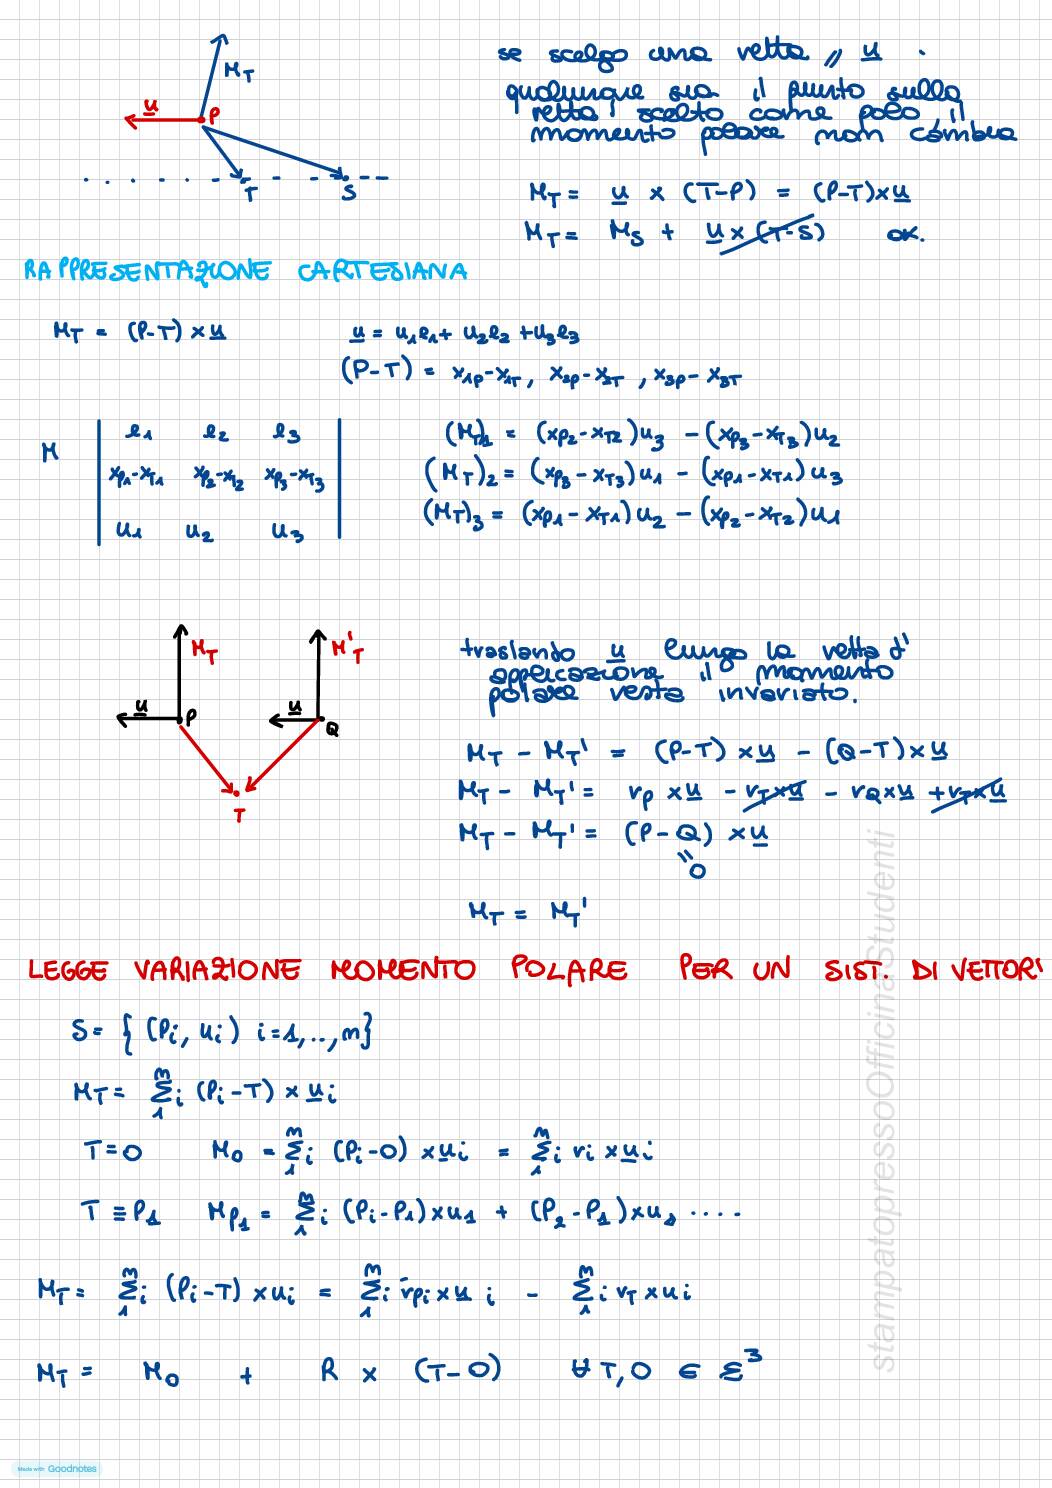 M_T
u
P
T
S
se scelgo una retta // u .
qualunque sia il punto sulla
retta scelto come polo, il
momento polare non cambia
M_T = u × (T-P) = (P-T)×u
M_T = M_S + u × (T-S) ok.
RAPPRESENTAZIONE CARTESIANA
M_T = (P-T) × u
u = u_1e_1 + u_2e_2 + u_3e_3
(P-T) = x_1P - x_1T , x_2P - x_2T , x_3P - x_3T
M
e_1 e_2 e_3
x_P1-x_T1 x_P2-x_T2 x_P3-x_T3
u_1 u_2 u_3
(M_T)_1 = (x_P2 - x_T2)u_3 - (x_P3 - x_T3)u_2
(M_T)_2 = (x_P3 - x_T3)u_1 - (x_P1 - x_T1)u_3
(M_T)_3 = (x_P1 - x_T1)u_2 - (x_P2 - x_T2)u_1
M_T
M'_T
u
P
u
Q
T
traslando u lungo la retta d'
applicazione il momento
polare resta invariato.
M_T - M_T' = (P-T) × u - (Q-T) × u
M_T - M_T' = r_P × u - r_T × u - r_Q × u + r_T × u
M_T - M_T' = (P-Q) × u
"0
M_T = M_T'
LEGGE VARIAZIONE MOMENTO POLARE PER UN SIST. DI VETTORI
S = { (P_i, u_i) i=1,..,m}
M_T = Σ_1^m i (P_i - T) × u_i
T=0 M_0 = Σ_1^m i (P_i - 0) × u_i = Σ_1^m i r_i × u_i
T ≡ P_1 M_P1 = Σ_1^m i (P_i - P_1) × u_1 + (P_2 - P_1) × u_2 ....
M_T = Σ_1^m i (P_i - T) × u_i = Σ_1^m i r_Pi × u i - Σ_1^m i r_T × u_i
M_T = M_0 + R × (T-0) ∀ T, O ∈ Ɛ^3
stampatopressoOfficinaStudenti
Made with Goodnotes